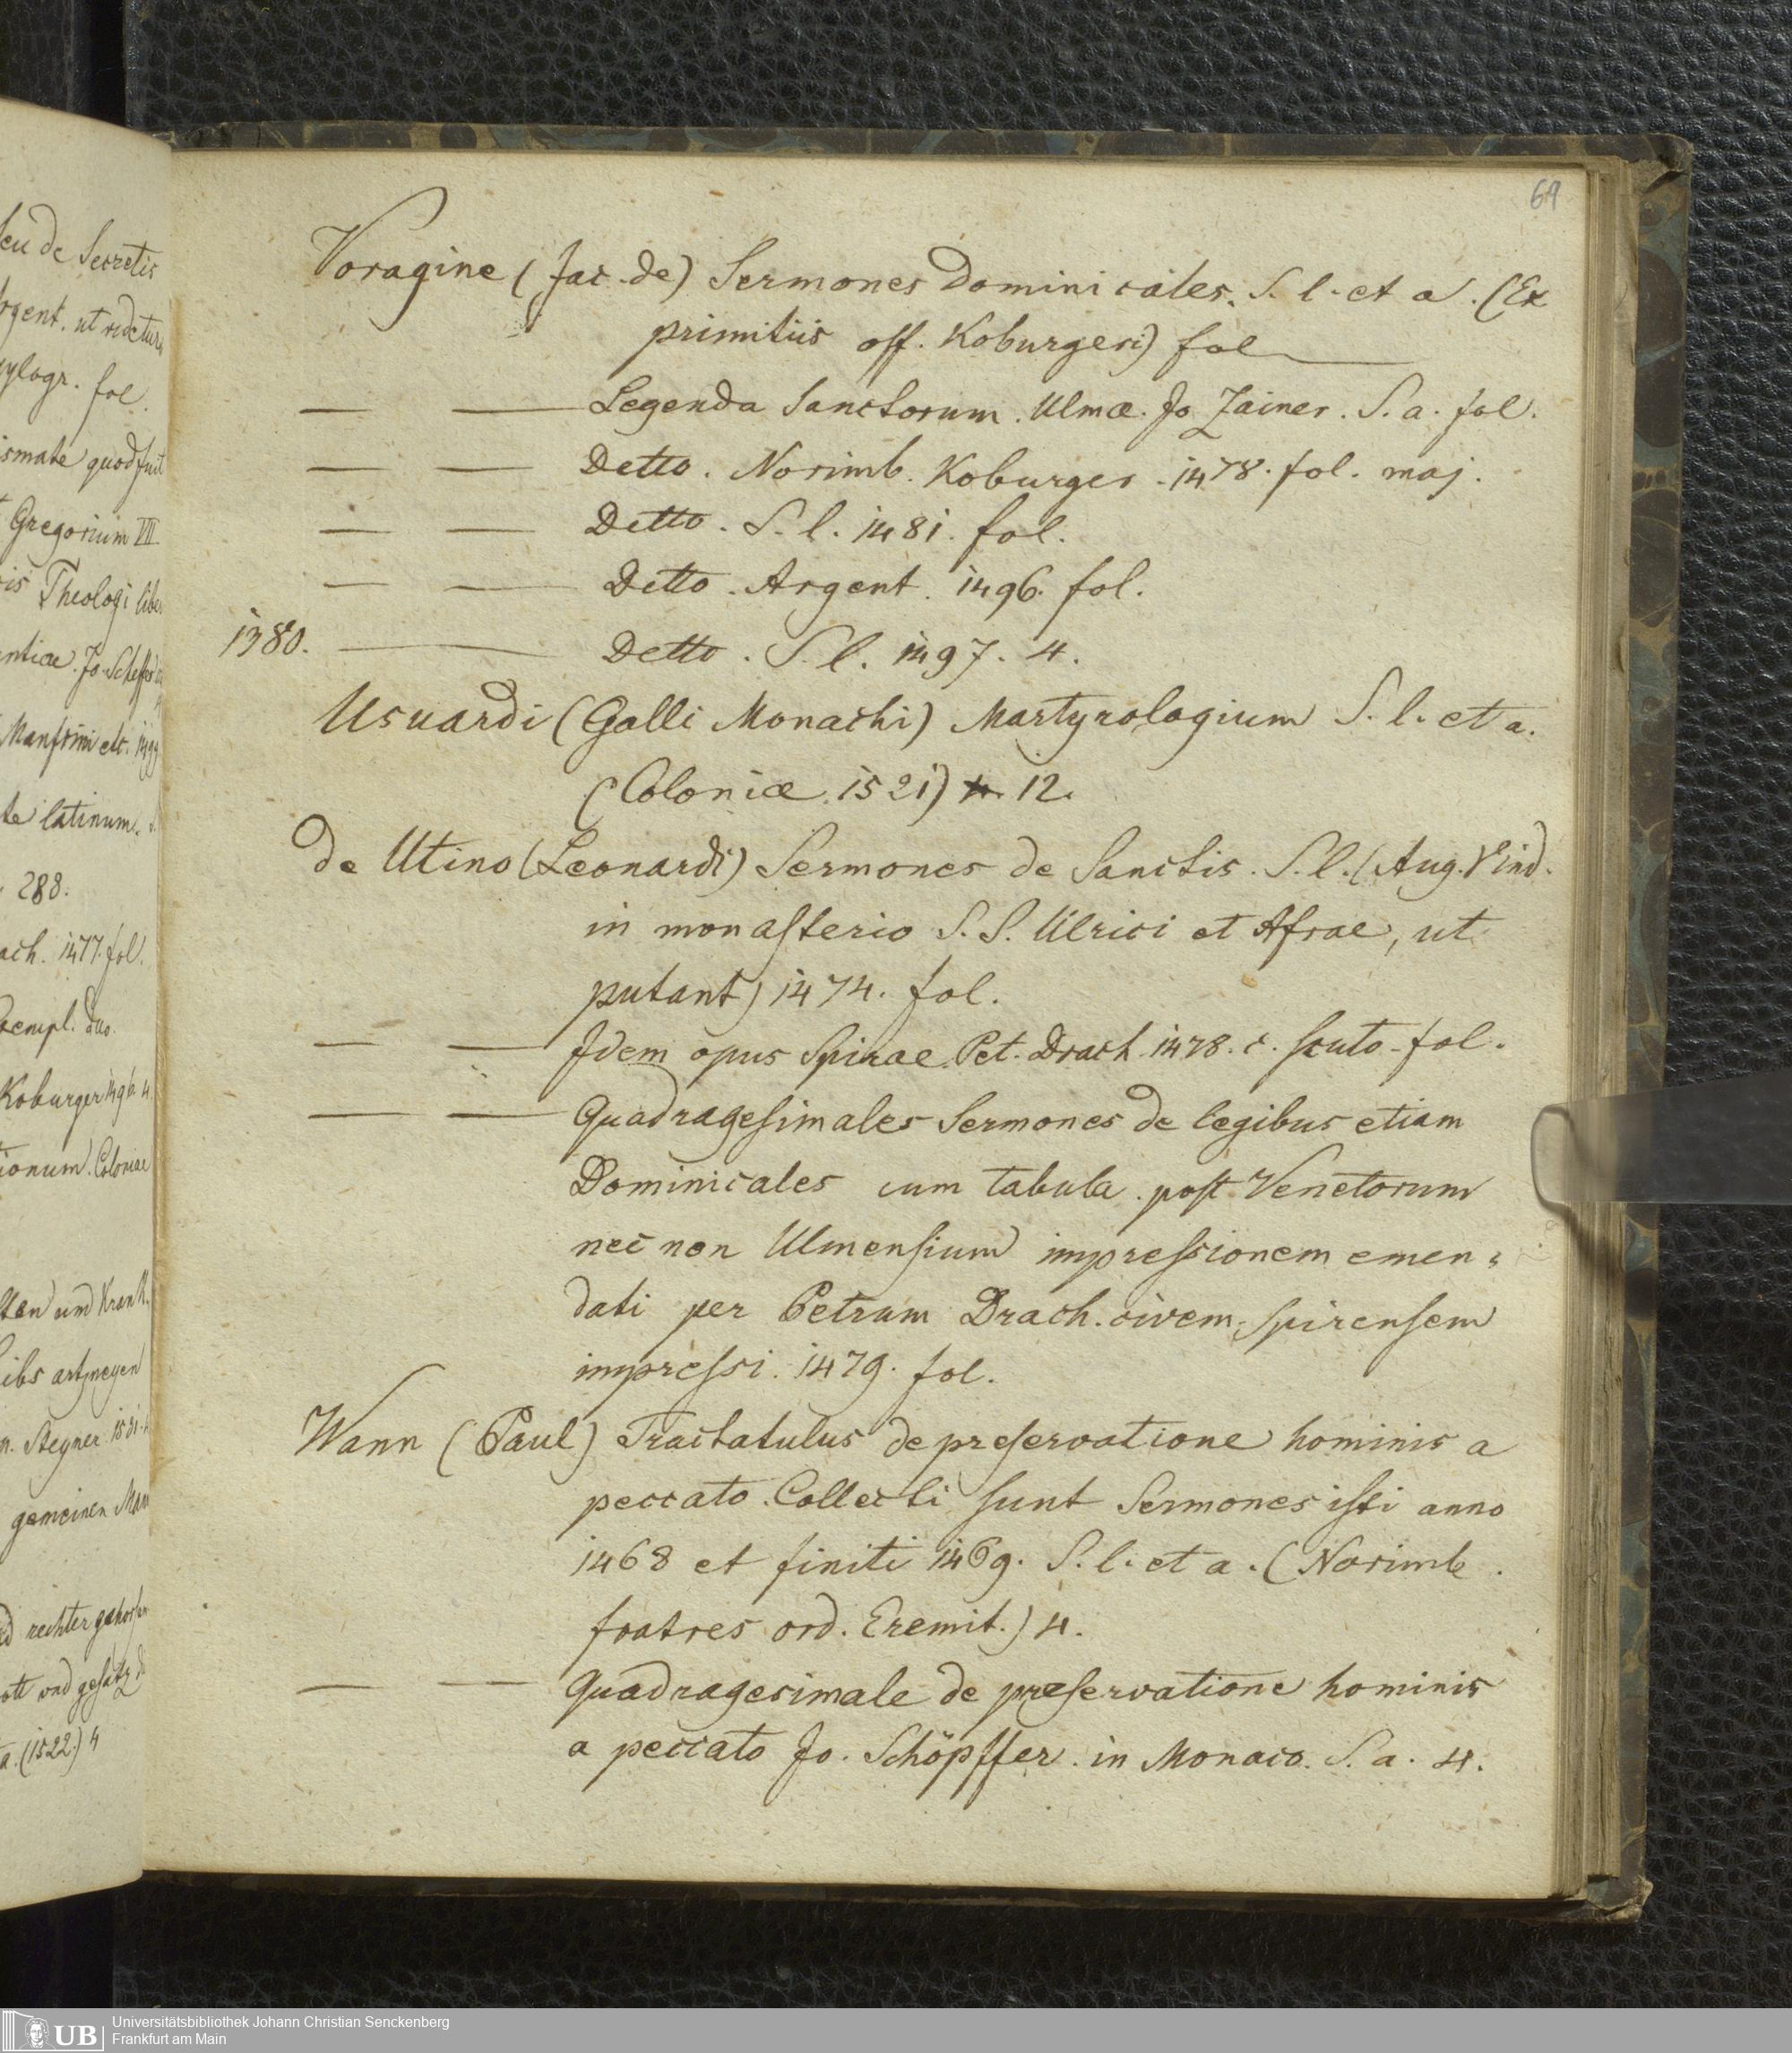 seu de Secretis
ut videtur
fol.
quod fuit
Gregorium VII
Theologi
Jo
etc.
latinum.
288.
1477. fol.
duo.
Koburger 1496. 4
Coloniae
und
gemeinen
rechter
und gesatz
a. (1522.) 4
69
Voragine (Jac. de) Sermones Dominicales. S. l. et a. (Ex
primitiis off. Koburgeri) fol
— — Legenda Sanctorum. Ulmæ. Jo Zainer. S. a. fol.
— — Detto. Norimb. Koburger. 1478. fol. maj.
— — Detto. S. l. 1481. fol.
— — Detto. Argent. 1496. fol.
1380. — Detto. S. l. 1497. 4.
Usuardi (Galli Monachi) Martyrologium S. l. et a.
(Coloniæ. 1521) 4. 12.
de Utino (Leonardi) Sermones de Sanctis. S. l. (Aug. Vind.
in monasterio S. S. Ulrici et Afrae, ut
putant) 1474. fol.
— — Idem opus Spirae. Pet. Drach. 1478. c. scuto. fol.
— — Quadragesimales Sermones de legibus etiam
Dominicales cum tabula post Venetorum
nec non Ulmensium impressionem emen„
dati per Petrum Drach. civem Spirensem
impressi. 1479. fol.
Wann (Paul) Tractatulus de preservatione hominis a
peccato. Collecti sunt Sermones isti anno
1468 et finiti 1469. S. l. et a. (Norimb.
fratres ord. Eremit.) 4.
— — Quadragesimale de præservatione hominis
a peccato Jo. Schöpffer. in Monaco. S. a. 4.
UB
Universitätsbibliothek Johann Christian Senckenberg
Frankfurt am Main